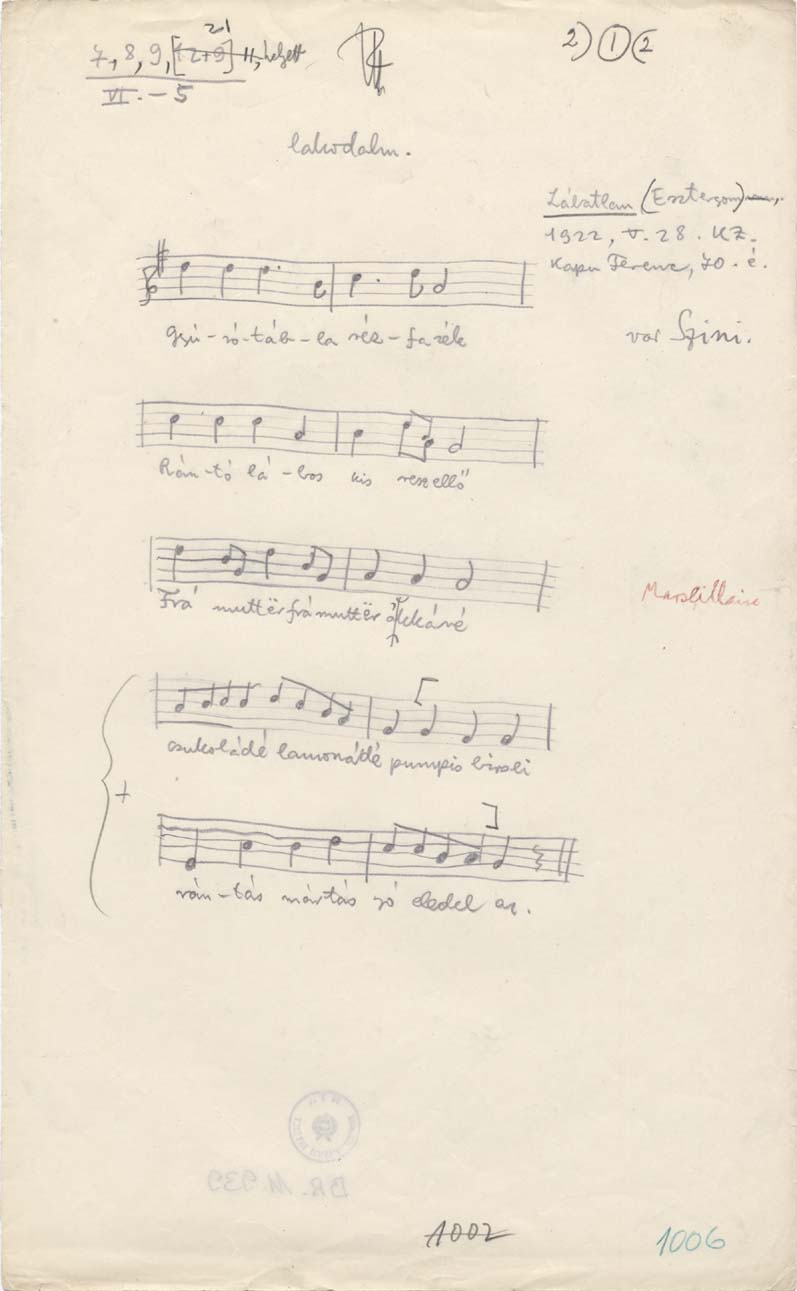 21
7, 8, 9, [12+9] 11, helyett
VI. – 5
2) 1 (2
lakodalm.
Lábatlan (Esztergom)
1922, V. 28. KZ.
Kapu Ferenc, 70. é.
var Szini.
gyú-ró-táb-la réz-fazék
Rán-tó lá-bos kis reszellő
Frá muttër frá muttër ákkávé
Marseillaise
csukoládé lamonádé pumpis birsli
+
rán-tás mártás jó eledel az.
BR. M. 939
1002
1006